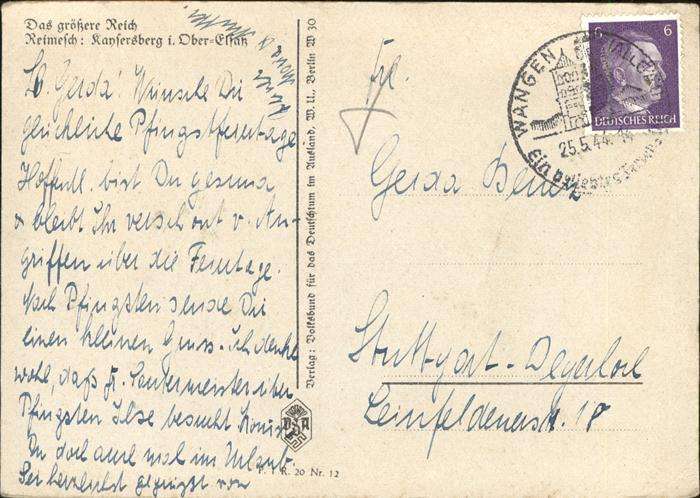 Das größere Reich
Reimesch: Kaysersberg i. Ober-Elsaß
Lb. Gerda! Wünsche Dir
glückliche Pfingstfeiertage
Hoffentl. bist Du gesund
& bleibt Ihr verschont v. An-
griffen über die Feiertage.
Nach Pfingsten sende Dir
einen kleinen Gruss. Ich denke
wohl, daß Fr. Sautermeister über
Pfingsten Ilse besucht. Komst
Du doch auch mal im Urlaub.
Sei herzlichst gegrüsst von
Verlag: Volksbund für das Deutschtum im Ausland, W.U., Berlin W 30
VDA
P. f R. 20 Nr. 12
Frl.
Gerda
Stuttgart-Degerloch
Leinfeldenerstr. 18
6 6
DEUTSCHES REICH
WANGEN (ALLGÄU)
25.5.44
Ein beliebtes